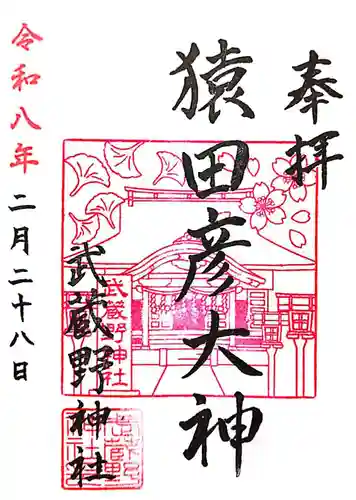 奉拝
猿田彦大神
武蔵野神社
武蔵野神社
令和八年二月二十八日